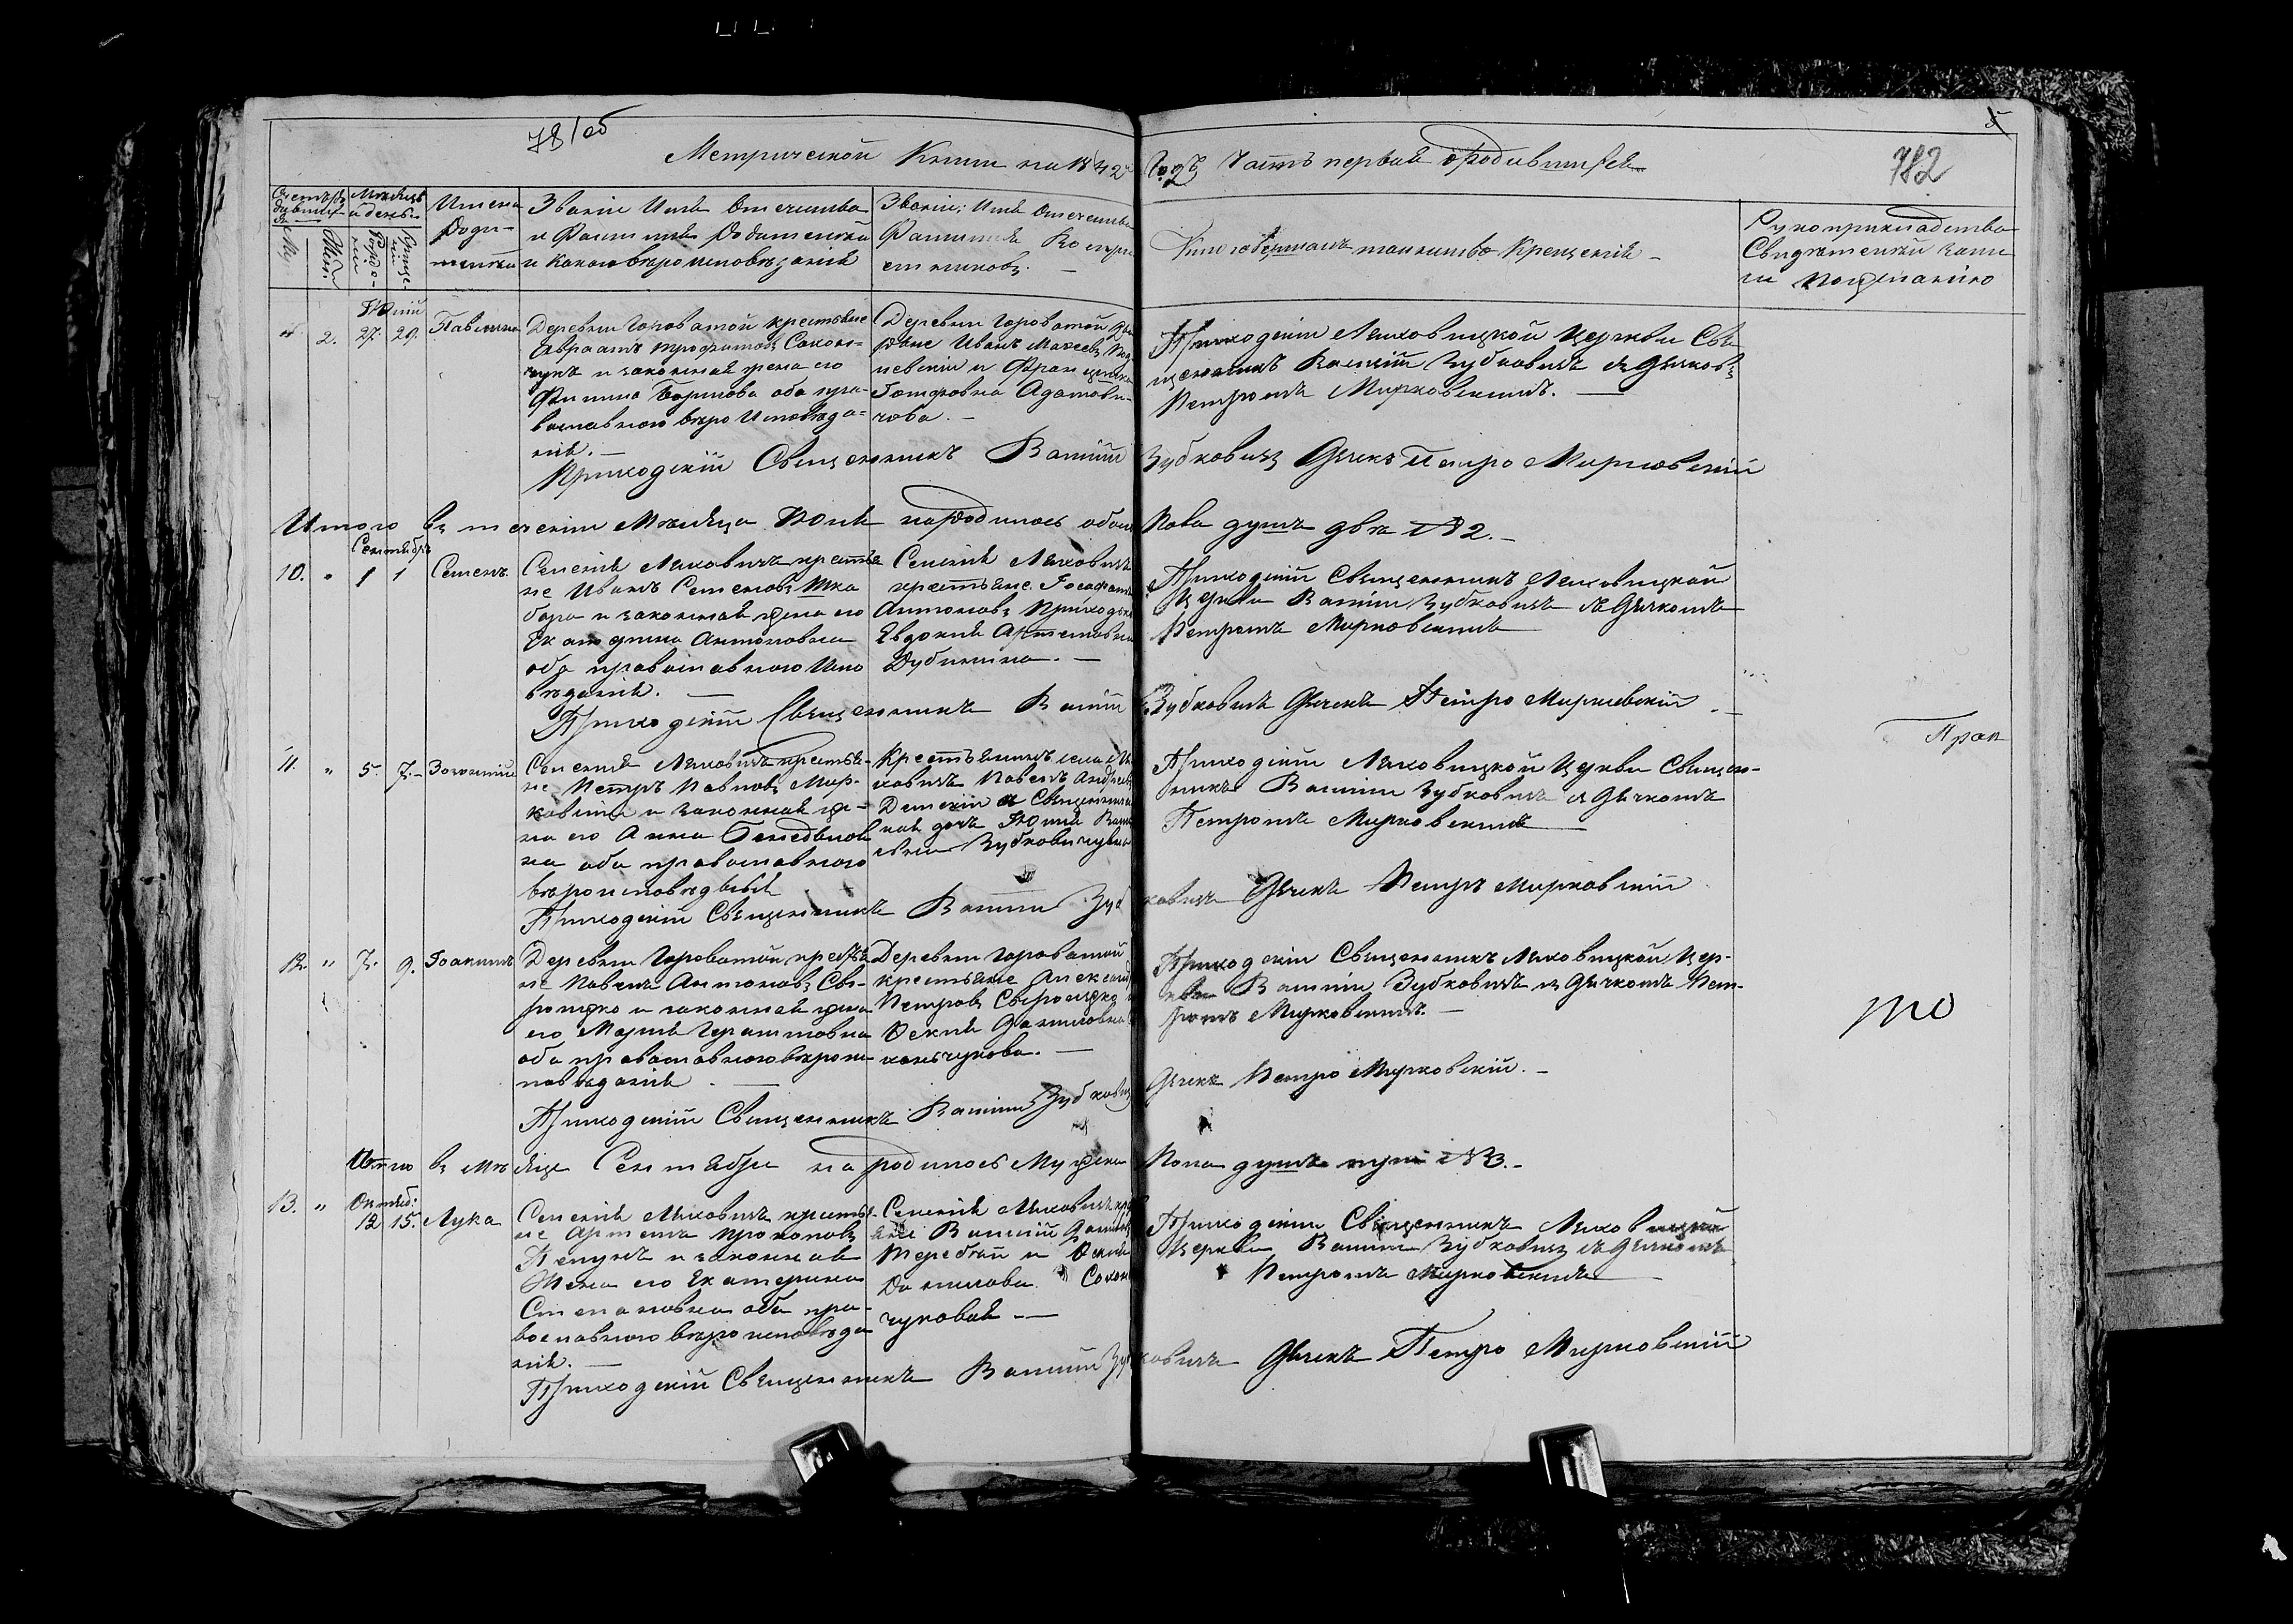 78/об
Метрической Книги на 1842 Годъ Часть первая о родившихся
782
Имена Роди-
Званіе Имя Отечество
и Фамилія Родителей
и какого вѣроисповѣданія
Званіе, Имя Отечество
Фамилія Воспрі-
емниковъ.
Кто совершалъ таинство Крещенія
Рукоприкладство
Свидѣтелей запи-
си по желанію
Іюнь
2. 27. 29. Павлина
Деревни Гороватой крестьяне
Авраамъ Трофимовъ
и законная жена его
оба пра-
вославного вѣро Исповѣда-
нія.
Деревни Гороватой
Иванъ Матеевъ
и Францишка
Адамови-
чова.
Приходскій Ляховицкой Церкви Свя-
щенникъ Василій Зубковичъ съ Дьячкомъ
Петромъ Мирковскимъ.
Приходскій Священникъ Василій Зубковичъ Дьячекъ Петро Мирковскій
Итого въ теченіи Мѣсяца Іюня народилось обоего Пола душъ двѣ №2.
Сентябрь
10. " 1 1 Семенъ
Селенія Ляховичъ крестья
не Иванъ Семеновъ Шка
бара и законная жена его
Екатерина Антоновна
оба православного Испо
вѣданія.
Селенія Ляховичъ
крестьяне Іосафатъ
Антоновъ Приходько
Евдокія Артемовна
Дубинина.
Приходскій Священникъ Ляховицкой
Церкви Василій Зубковичъ съ Дьячкомъ
Петромъ Мирковскимъ
Приходскій Священникъ Василій Зубковичъ Дьячекъ Петро Мирковскій
11. " 5. 7.
Селенія Ляховичъ крестья-
не Петръ Павловъ Мир-
и законная же-
на его Анна Бенедыков
на оба православного
вѣроисповѣданія
Крестьянинъ села Ля
ховичъ Павелъ Андреевъ
и Священниче
ская дочь Юлія Васи
Зубковичувна
Приходскій Ляховицкой Церкви Священ-
никъ Василій Зубковичъ съ Дьячкомъ
Петромъ Мирковскимъ
Трап
Приходскій Священникъ Василій Зубковичъ Дьячекъ Петръ Мирковскій
12. " 7. 9. Іоакимъ
Деревни Гороватой крестья
не Павелъ Антоновъ Сы-
ротко и законная жена
его Марія Герасимовна
оба православного вѣроис
повѣданія
Деревни Гороватой
крестьяне Александ
Петровъ Сыротко
Фекла Даниловна
Приходскій Священникъ Ляховицкой Цер-
кви Василій Зубковичъ съ Дьячкомъ Пет-
ромъ Мирковскимъ.
Приходскій Священникъ Василій Зубковичъ Дьячекъ Петро Мирковскій.
Итого въ Мѣсяце Сентябри народилось Мужеска Пола душъ три №3.
Октяб:
13. " 12 15. Лука
Селенія Ляховичъ крестья-
не Артемъ Прокоповъ
и законная
Жена его Екатерина
Степановна оба пра-
вославного вѣроисповѣда
нія.
Селенія Ляховичъ кре
яне Василій
и Фекла
Данилова Сокол
чуковая
Приходскій Священникъ Ляховицкой
Церкви Василій Зубковичъ съ Дьячкомъ
Петромъ Мирковскимъ
Приходскій Священникъ Василій Зубковичъ Дьячекъ Петро Мирковскій